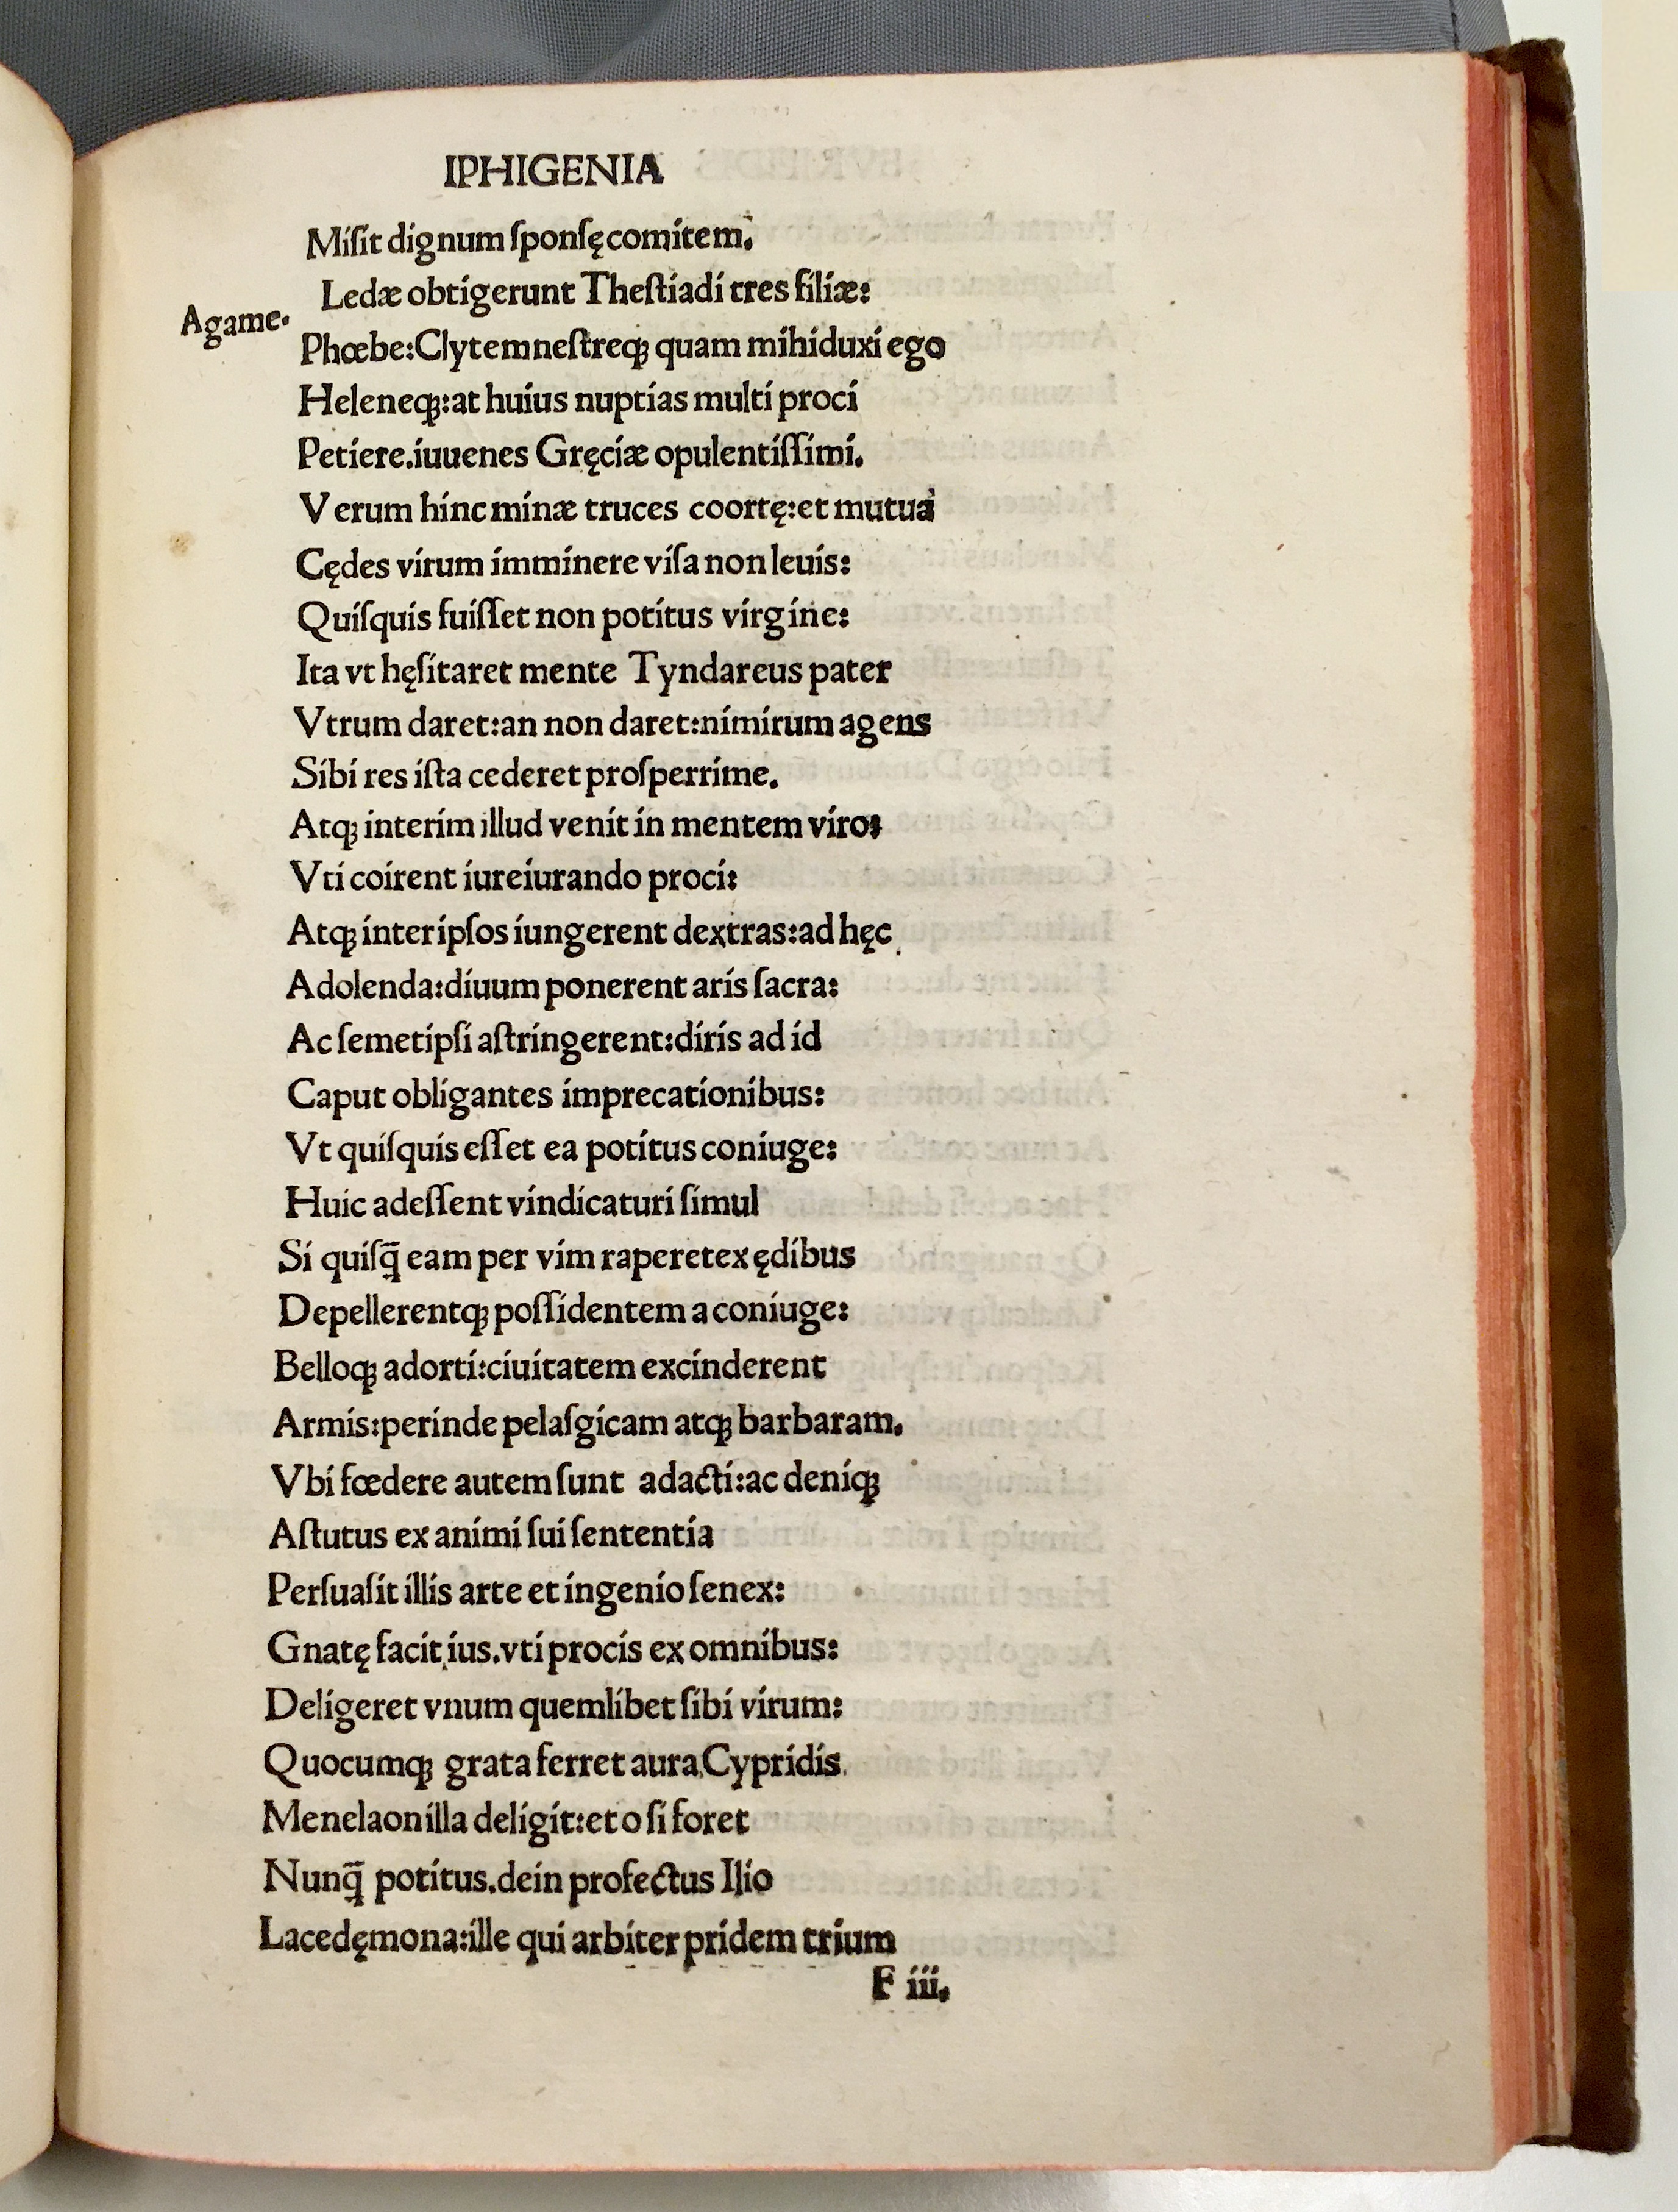 IPHIGENIA
Miſit dignum ſponſę comitem.
Agame.
Ledæ obtigerunt Theſtiadi tres filiæ:
Phœbe:Clytemneſtreqꝫ quam mihi duxi ego
Heleneqꝫ:at huius nuptias multi proci
Petiere.iuuenes Gręciæ opulentiſſimi.
Verum hinc minæ truces coortę:et mutua
Cędes virum imminere viſa non leuis:
Quiſquis fuiſſet non potitus virgine:
Ita vt hęſitaret mente Tyndareus pater
Vtrum daret:an non daret:nimirum agens
Sibi res iſta cederet proſperrime.
Atqꝫ interim illud venit in mentem viro:
Vti coirent iureiurando proci:
Atqꝫ inter ipſos iungerent dextras:ad hęc
Adolenda:diuum ponerent aris ſacra:
Ac ſemetipſi aſtringerent:diris ad id
Caput obligantes imprecationibus:
Vt quiſquis eſſet ea potitus coniuge:
Huic adeſſent vindicaturi ſimul
Si quiſq̄ eam per vim raperet ex ędibus
Depellerentqꝫ poſſidentem a coniuge:
Belloqꝫ adorti:ciuitatem excinderent
Armis:perinde pelaſgicam atqꝫ barbaram.
Vbi fœdere autem ſunt adacti:ac deniqꝫ
Aſtutus ex animi ſui ſententia
Perſuaſit illis arte et ingenio ſenex:
Gnatę facit ius.vti procis ex omnibus:
Deligeret vnum quemlibet ſibi virum:
Quocumqꝫ grata ferret aura Cypridis.
Menelaon illa deligit:et o ſi foret
Nunq̄ potitus.dein profectus Ilio
Lacedęmona:ille qui arbiter pridem trium
F iii.